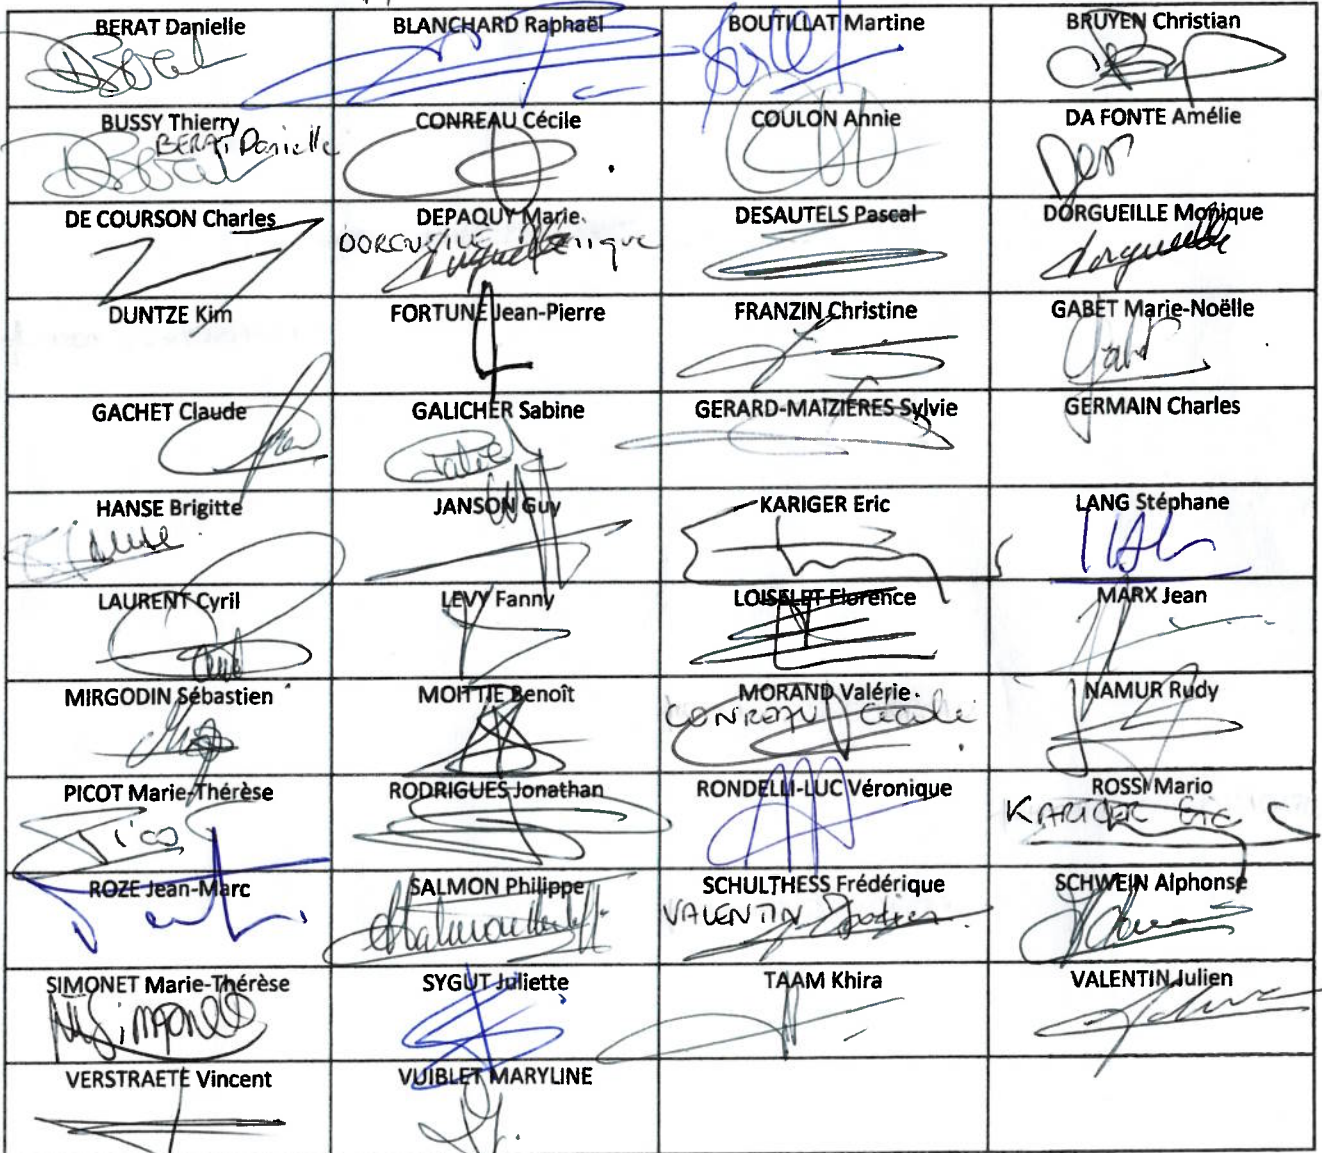 BERAT Danielle
BLANCHARD Raphaël
BOUTILLAT Martine
BRUYEN Christian
BUSSY Thierry
BERAT Danielle
CONREAU Cécile
COULON Annie
DA FONTE Amélie
DE COURSON Charles
DEPAQUY Marie
DORGUEILLE Monique
DESAUTELS Pascal
DORGUEILLE Monique
Dorgueille
DUNTZE Kim
FORTUNE Jean-Pierre
FRANZIN Christine
GABET Marie-Noëlle
Gabet
GACHET Claude
GALICHER Sabine
GERARD-MAIZIERES Sylvie
GERMAIN Charles
HANSE Brigitte
JANSON Guy
KARIGER Eric
LANG Stéphane
LAURENT Cyril
LEVY Fanny
LOISELET Florence
MARX Jean
MIRGODIN Sébastien
MOITTIE Benoît
MORAND Valérie
CONREAU Cécile
NAMUR Rudy
PICOT Marie-Thérèse
Picot
RODRIGUES Jonathan
RONDELLI-LUC Véronique
ROSSI Mario
KARIGER Eric
ROZE Jean-Marc
SALMON Philippe
SCHULTHESS Frédérique
VALENTIN
SCHWEIN Alphonse
SIMONET Marie-Thérèse
SYGUT Juliette
TAAM Khira
VALENTIN Julien
VERSTRAETE Vincent
VUIBLET MARYLINE